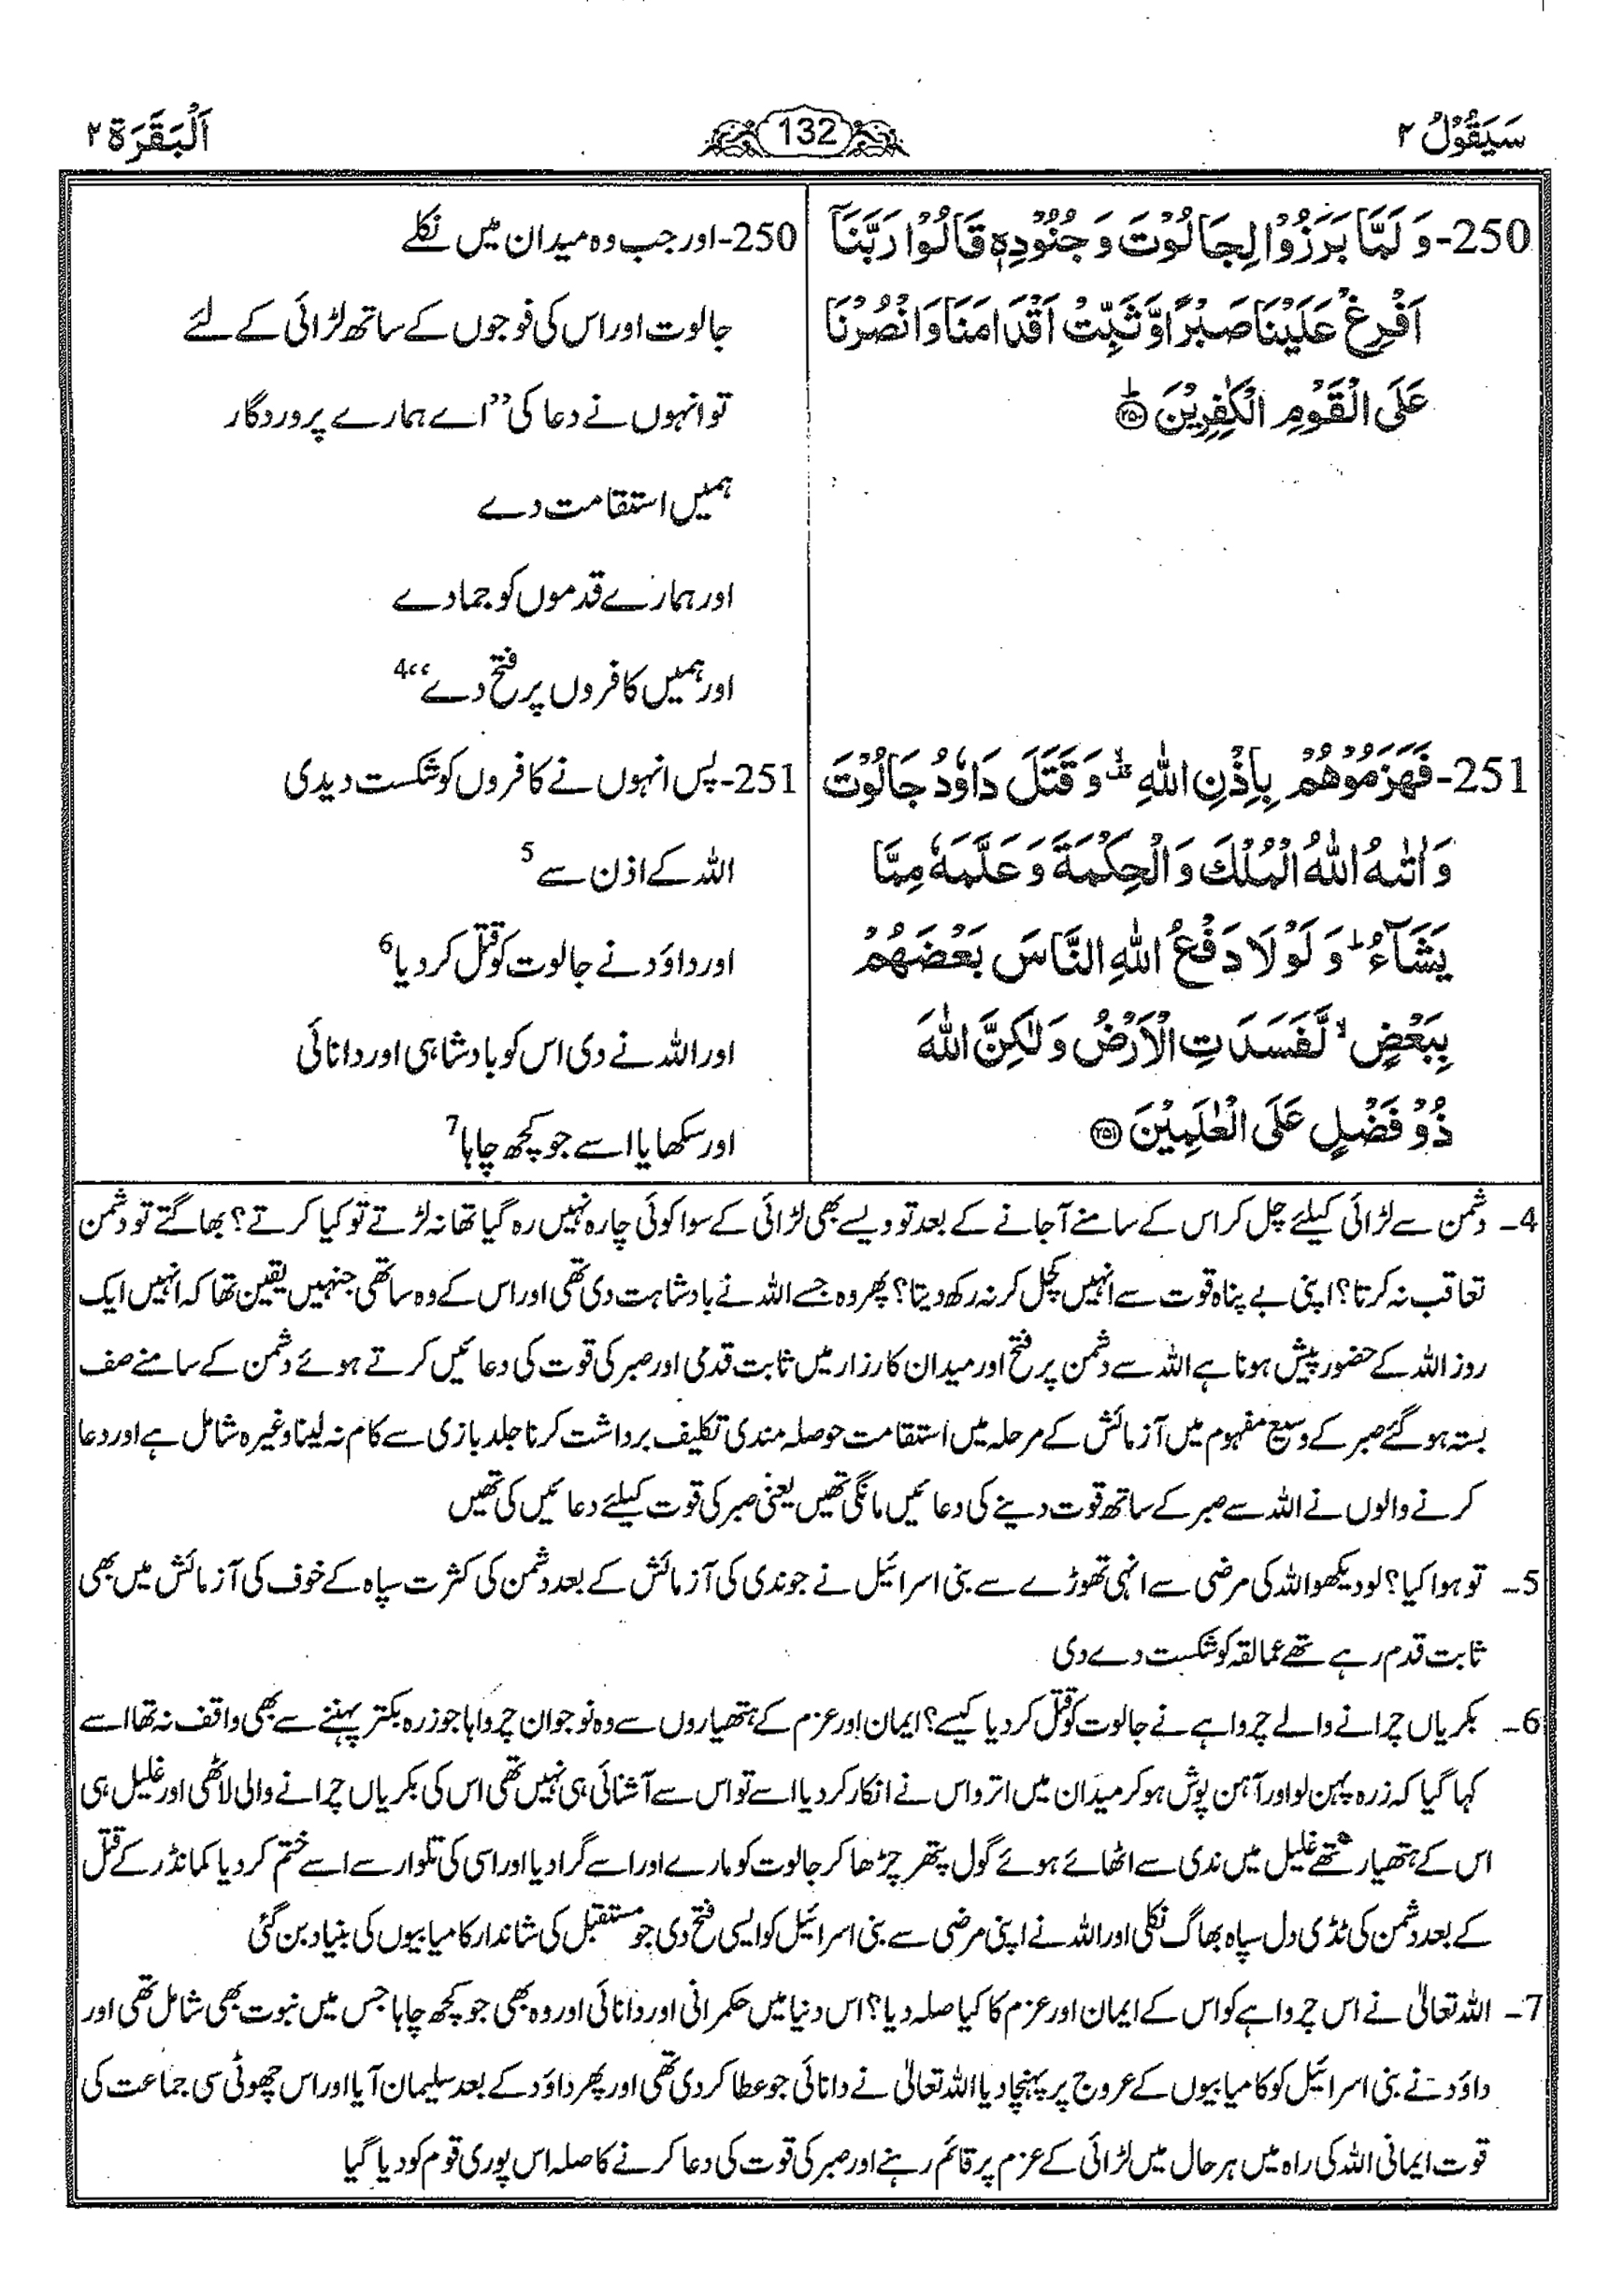 سَيَقُوْلُ ٢
132
اَلْبَقَرَة ٢
250-وَ لَمَّا بَرَزُوْا لِجَالُوْتَ وَ جُنُوْدِهٖ قَالُوْا رَبَّنَاۤ
اَفْرِغْ عَلَيْنَا صَبْرًا وَّ ثَبِّتْ اَقْدَامَنَا وَ انْصُرْنَا
عَلَى الْقَوْمِ الْكٰفِرِيْنَ ؕ ﴿۲۵۰﴾
251-فَهَزَمُوْهُمْ بِاِذْنِ اللّٰهِ ۙ۫ وَ قَتَلَ دَاوٗدُ جَالُوْتَ
وَ اٰتٰىهُ اللّٰهُ الْمُلْكَ وَ الْحِكْمَةَ وَ عَلَّمَهٗ مِمَّا
يَشَآءُ ؕ وَ لَوْ لَا دَفْعُ اللّٰهِ النَّاسَ بَعْضَهُمْ
بِبَعْضٍ ۙ لَّفَسَدَتِ الْاَرْضُ وَ لٰكِنَّ اللّٰهَ
ذُوْ فَضْلٍ عَلَى الْعٰلَمِيْنَ ﴿۲۵۱﴾
250-اور جب وہ میدان میں نکلے
جالوت اور اس کی فوجوں کے ساتھ لڑائی کے لئے
تو انہوں نے دعا کی ”اے ہمارے پروردگار
ہمیں استقامت دے
اور ہمارے قدموں کو جما دے
اور ہمیں کافروں پر فتح دے“4
251-پس انہوں نے کافروں کو شکست دیدی
اللہ کے اذن سے 5
اور داؤد نے جالوت کو قتل کر دیا6
اور اللہ نے دی اس کو بادشاہی اور دانائی
اور سکھایا اسے جو کچھ چاہا7
4۔ دشمن سے لڑائی کیلئے چل کر اس کے سامنے آجانے کے بعد تو ویسے بھی لڑائی کے سوا کوئی چارہ نہیں رہ گیا تھا نہ لڑتے تو کیا کرتے؟ بھاگتے تو دشمن
تعاقب نہ کرتا؟ اپنی بے پناہ قوت سے انہیں کچل کر نہ رکھ دیتا؟ پھر وہ جسے اللہ نے بادشاہت دی تھی اور اس کے وہ ساتھی جنہیں یقین تھا کہ انہیں ایک
روز اللہ کے حضور پیش ہونا ہے اللہ سے دشمن پر فتح اور میدان کارزار میں ثابت قدمی اور صبر کی قوت کی دعائیں کرتے ہوئے دشمن کے سامنے صف
بستہ ہو گئے صبر کے وسیع مفہوم میں آزمائش کے مرحلہ میں استقامت حوصلہ مندی تکلیف برداشت کرنا جلد بازی سے کام نہ لینا وغیرہ شامل ہے اور دعا
کرنے والوں نے اللہ سے صبر کے ساتھ قوت دینے کی دعائیں مانگی تھیں یعنی صبر کی قوت کیلئے دعائیں کی تھیں
5۔ تو ہوا کیا؟ لو دیکھو اللہ کی مرضی سے انہی تھوڑے سے بنی اسرائیل نے جو ندی کی آزمائش کے بعد دشمن کی کثرت سپاہ کے خوف کی آزمائش میں بھی
ثابت قدم رہے تھے عمالقہ کو شکست دے دی
6۔ بکریاں چرانے والے چرواہے نے جالوت کو قتل کر دیا کیسے؟ ایمان اور عزم کے ہتھیاروں سے وہ نوجوان چرواہا جو زرہ بکتر پہننے سے بھی واقف نہ تھا اسے
کہا گیا کہ زرہ پہن لو اور آہن پوش ہو کر میدان میں اترو اس نے انکار کر دیا اسے تو اس سے آشنائی ہی نہیں تھی اس کی بکریاں چرانے والی لاٹھی اور غلیل ہی
اس کے ہتھیار تھے غلیل میں ندی سے اٹھائے ہوئے گول پتھر چڑھا کر جالوت کو مارے اور اسے گرا دیا اور اسی کی تلوار سے اسے ختم کر دیا کمانڈر کے قتل
کے بعد دشمن کی ٹڈی دل سپاہ بھاگ نکلی اور اللہ نے اپنی مرضی سے بنی اسرائیل کو ایسی فتح دی جو مستقبل کی شاندار کامیابیوں کی بنیاد بن گئی
7۔ اللہ تعالیٰ نے اس چرواہے کو اس کے ایمان اور عزم کا کیا صلہ دیا؟ اس دنیا میں حکمرانی اور دانائی اور وہ بھی جو کچھ چاہا جس میں نبوت بھی شامل تھی اور
داؤد نے بنی اسرائیل کو کامیابیوں کے عروج پر پہنچا دیا اللہ تعالیٰ نے دانائی جو عطا کر دی تھی اور پھر داؤد کے بعد سلیمان آیا اور اس چھوٹی سی جماعت کی
قوت ایمانی اللہ کی راہ میں ہر حال میں لڑائی کے عزم پر قائم رہنے اور صبر کی قوت کی دعا کرنے کا صلہ اس پوری قوم کو دیا گیا